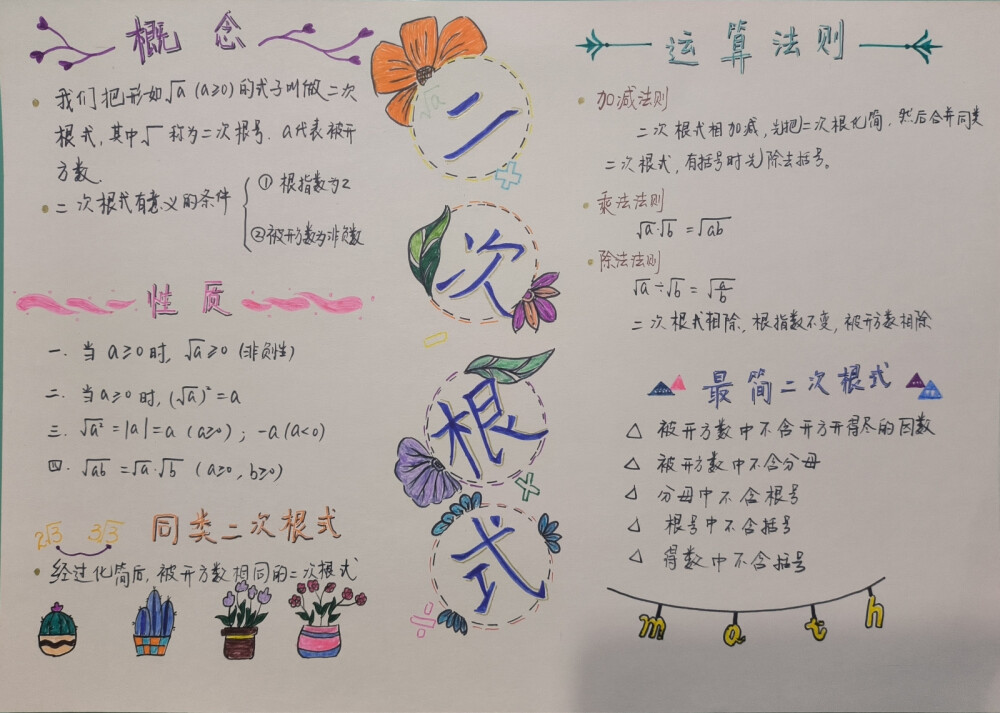 概念
我们把形如√a (a≥0)的式子叫做二次
根式,其中√ 称为二次根号. a代表被开
方数.
二次根式有意义的条件
① 根指数为2
②被开方数为非负数
性质
一. 当 a≥0 时, √a ≥0 (非负性)
二. 当 a≥0 时, (√a)² = a
三. √a² = |a| = a (a≥0) ; -a (a<0)
四. √ab = √a·√b (a≥0, b≥0)
2√3 3√3
同类二次根式
经过化简后, 被开方数相同的二次根式
√a
二
次
根
式
运算法则
加减法则
二次根式相加减, 先把二次根化简, 然后合并同类
二次根式, 有括号时先除去括号。
乘法法则
√a·√b = √ab
除法法则
√a÷√b = √a/b
二次根式相除, 根指数不变, 被开方数相除
最简二次根式
△ 被开方数中不含开方开得尽的因数
△ 被开方数中不含分母
△ 分母中不含根号
△ 根号中不含括号
△ 得数中不含括号
math